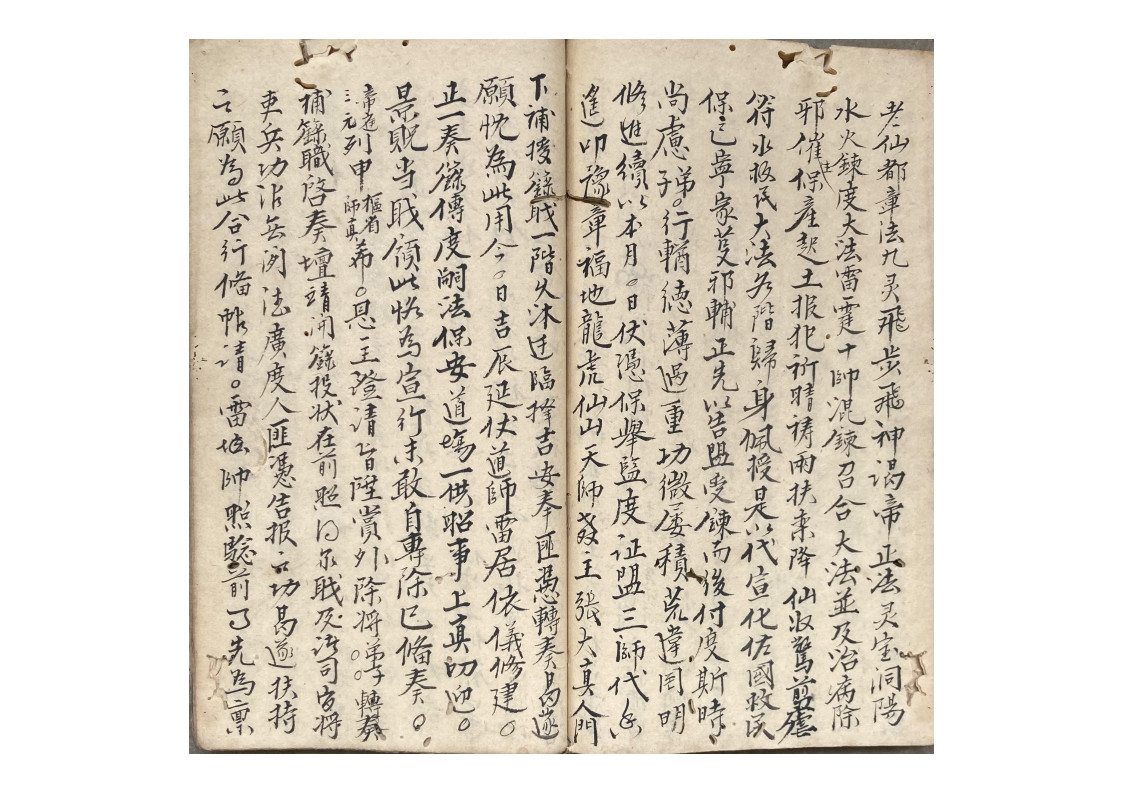 老仙都章法九灵飛步飛神謁帝正法灵宝洞陽
水火鍊度大法雷霆十帥混鍊召合大法並及治病除
邪催生保產起土报犯祈晴祷雨扶桒降仙收驚剪瘧
符水救民大法各階歸身佩授是以代宣化佐國救民
保已寧家芟邪輔正先以告盟受鍊而後付度斯時
尚慮弟子○行輶徳薄過重功微屡積荒違罔明
修進續以本月○日伏憑保舉監度证盟三師代
遙叩豫章福地龍虎仙山天師教主張大真人門
下補授籙戝一階久沐迂臨擇吉安奉匪憑轉奏曷遂
願忱為此用今○日吉辰延伏道師雷居依儀修建○
正一奏籙傳度嗣法保安道塲一供昭事上真切迎○
景貺当戝領此恪為宣行未敢自專除已俻奏○
帝庭三元列申樞省師真希○恩主證清旨陞賞外除将弟子○○轉奏
補籙職啓奏壇靖開籙投状在前照得尔戝及諸司官将
吏兵功沾無浰法廣度人匪憑告报之功曷遂扶持
之願為此合行俻帖请○雷坛帅照驗前了先為禀